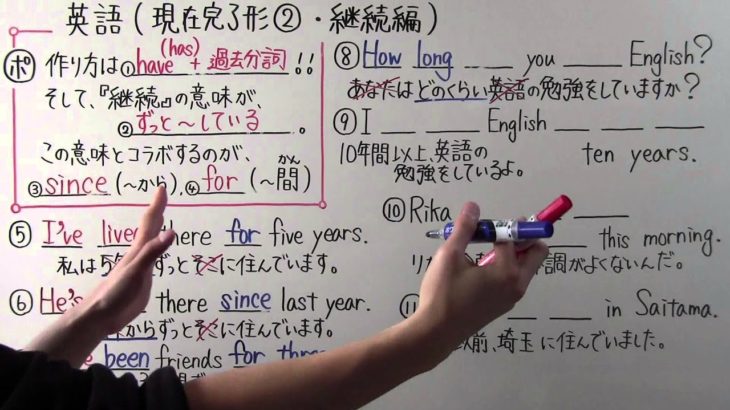 英語(現在完了形②・継続編)
ポ 作り方は①have(has)+過去分詞!!
そして、『継続』の意味が、
②ずっと〜している。
この意味とコラボするのが、
③since(〜から)、④for(〜間)
かん
⑤ I've lived there for five years.
私は5年 ずっとそこに住んでいます。
⑥ He's there since last year.
からずっとそこに住んでいます。
been friends for three
⑧ How long ___ you ___ English?
あなたはどのくらい英語の勉強をしていますか?
⑨ I ___ ___ English ___ ___ ___
ten years.
10年間以上、英語の
勉強をしているよ。
⑩ Rika ___
___ this morning.
調がよくないんだ。
___ ___ ___ in Saitama.
前、埼玉に住んでいました。